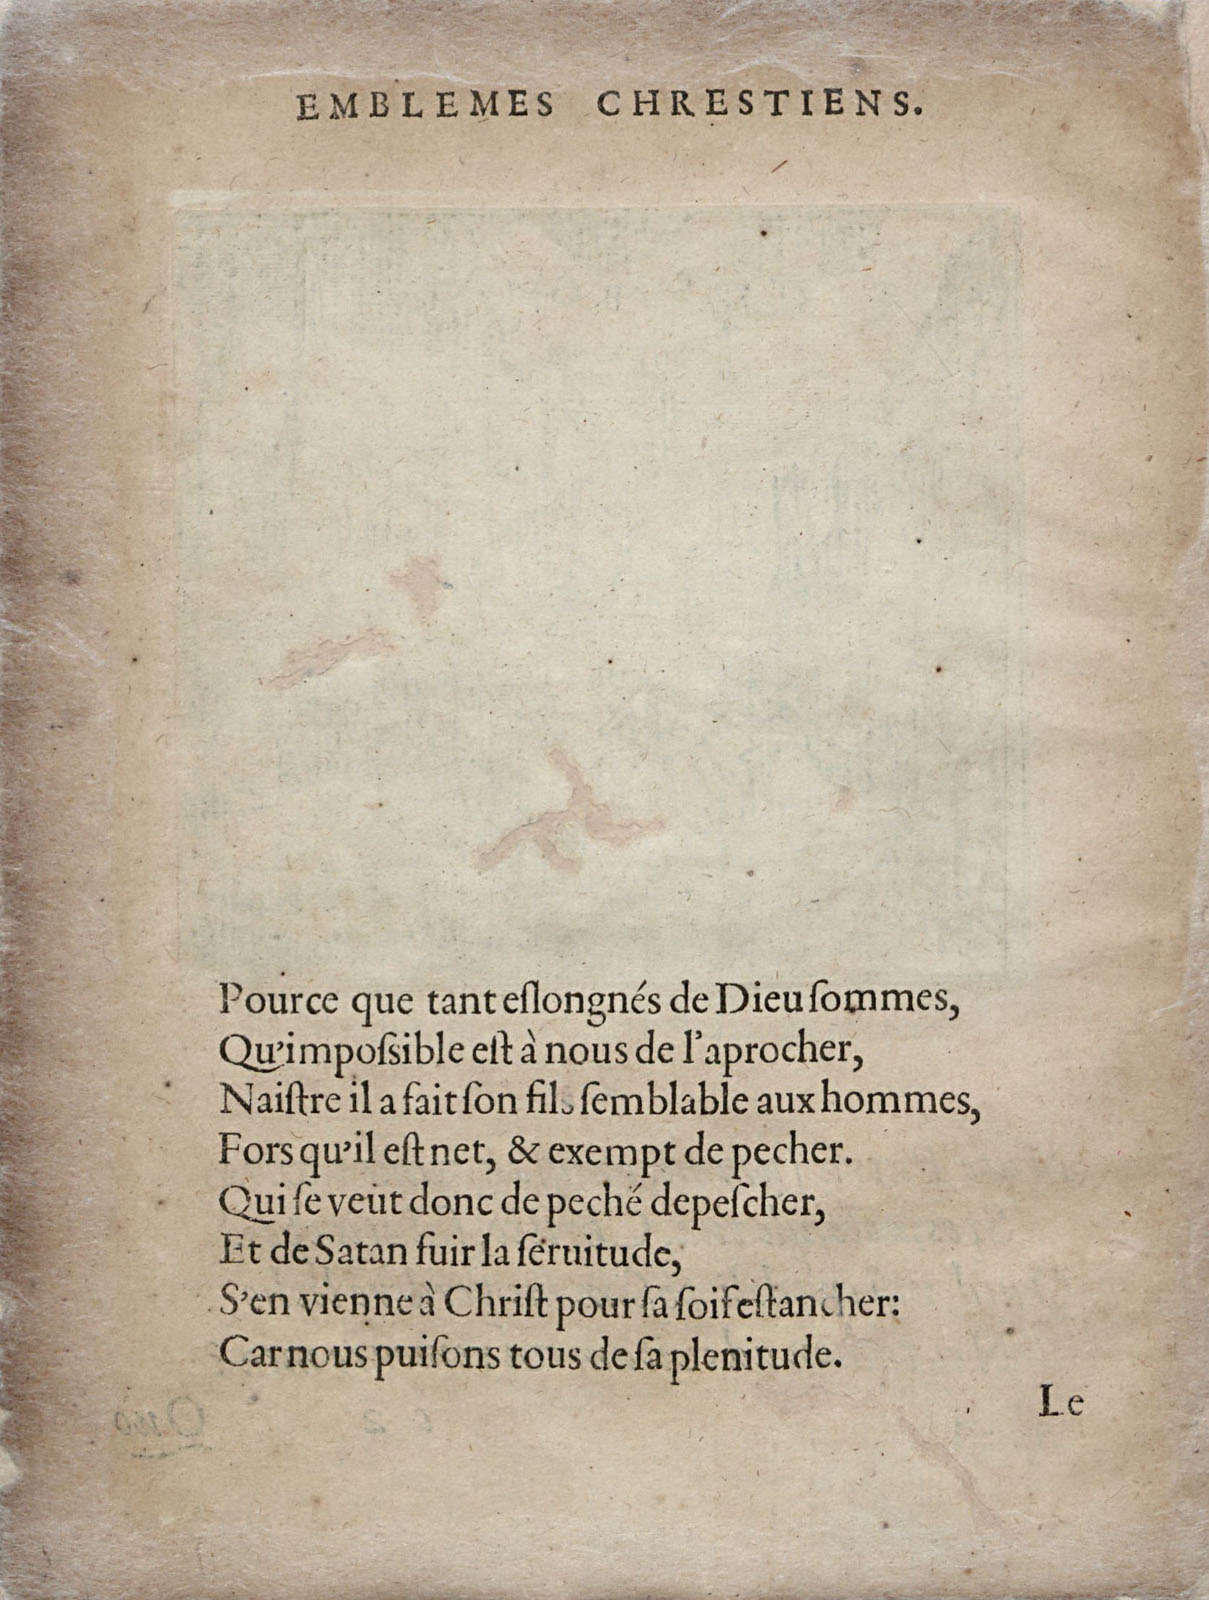 EMBLEMES CHRESTIENS.
Pource que tant eſlongnés de Dieu ſommes,
Qu'impoſsible eſt à nous de l'aprocher,
Naiſtre il a fait ſon fils ſemblable aux hommes,
Fors qu'il eſt net, & exempt de pecher.
Qui ſe veut donc de peché depeſcher,
Et de Satan fuir la ſeruitude,
S'en vienne à Chriſt pour ſa ſoif eſtancher:
Car nous puiſons tous de ſa plenitude.
Le